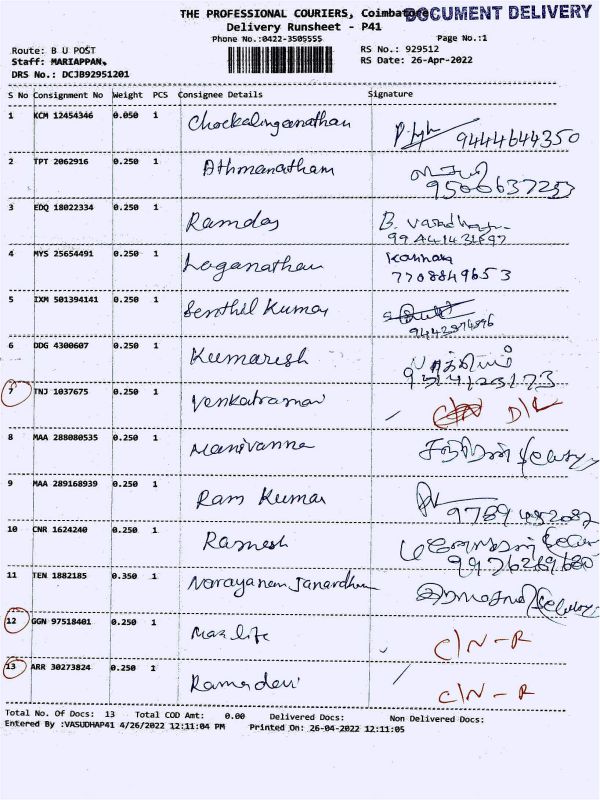 THE PROFESSIONAL COURIERS, Coimbatore
DOCUMENT DELIVERY
Delivery Runsheet - P41
Phone No.:0422-3505555
Page No.:1
Route: B U POST
RS No.: 929512
Staff: MARIAPPAN.
RS Date: 26-Apr-2022
DRS No.: DCJB92951201
S No Consignment No Weight PCS Consignee Details Signature
1 KCM 12454346 0.050 1 Chockalinganathan 9444644350
2 TPT 2062916 0.250 1 Athmanatham
9500637253
3 EDQ 18022334 0.250 1 Ramdas B.
4 MYS 25654491 0.250 1 Loganathan Kannan
7708849653
5 IXM 501394141 0.250 1 Senthil Kumar
6 DDG 4300607 0.250 1 Kumaresh
7 TNJ 1037675 0.250 1 Venkatraman D/L
8 MAA 288080535 0.250 1 Manivanna
9 MAA 289168939 0.250 1 Ram Kumar
10 CNR 1624240 0.250 1 Ramesh
11 TEN 1882185 0.350 1 Narayanan Janardhan
12 GGN 97518401 0.250 1 Max life C/N-R
13 ARR 30273824 0.250 1 Ramadevi C/N-R
Total No. Of Docs: 13 Total COD Amt: 0.00 Delivered Docs: Non Delivered Docs:
Entered By :VASUDHAP41 4/26/2022 12:11:04 PM Printed On: 26-04-2022 12:11:05